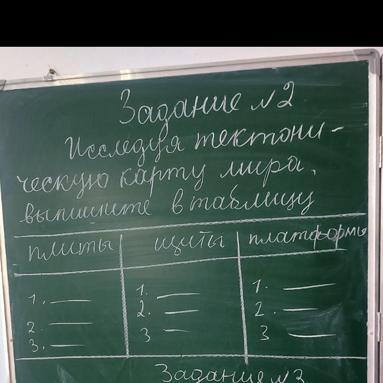 Задание №2
Исследуя тектони-
ческую карту мира,
выпишите в таблицу
плиты щиты платформы
1. — 1. — 1. —
2. — 2. — 2. —
3. — 3 — 3 —
Задание №3